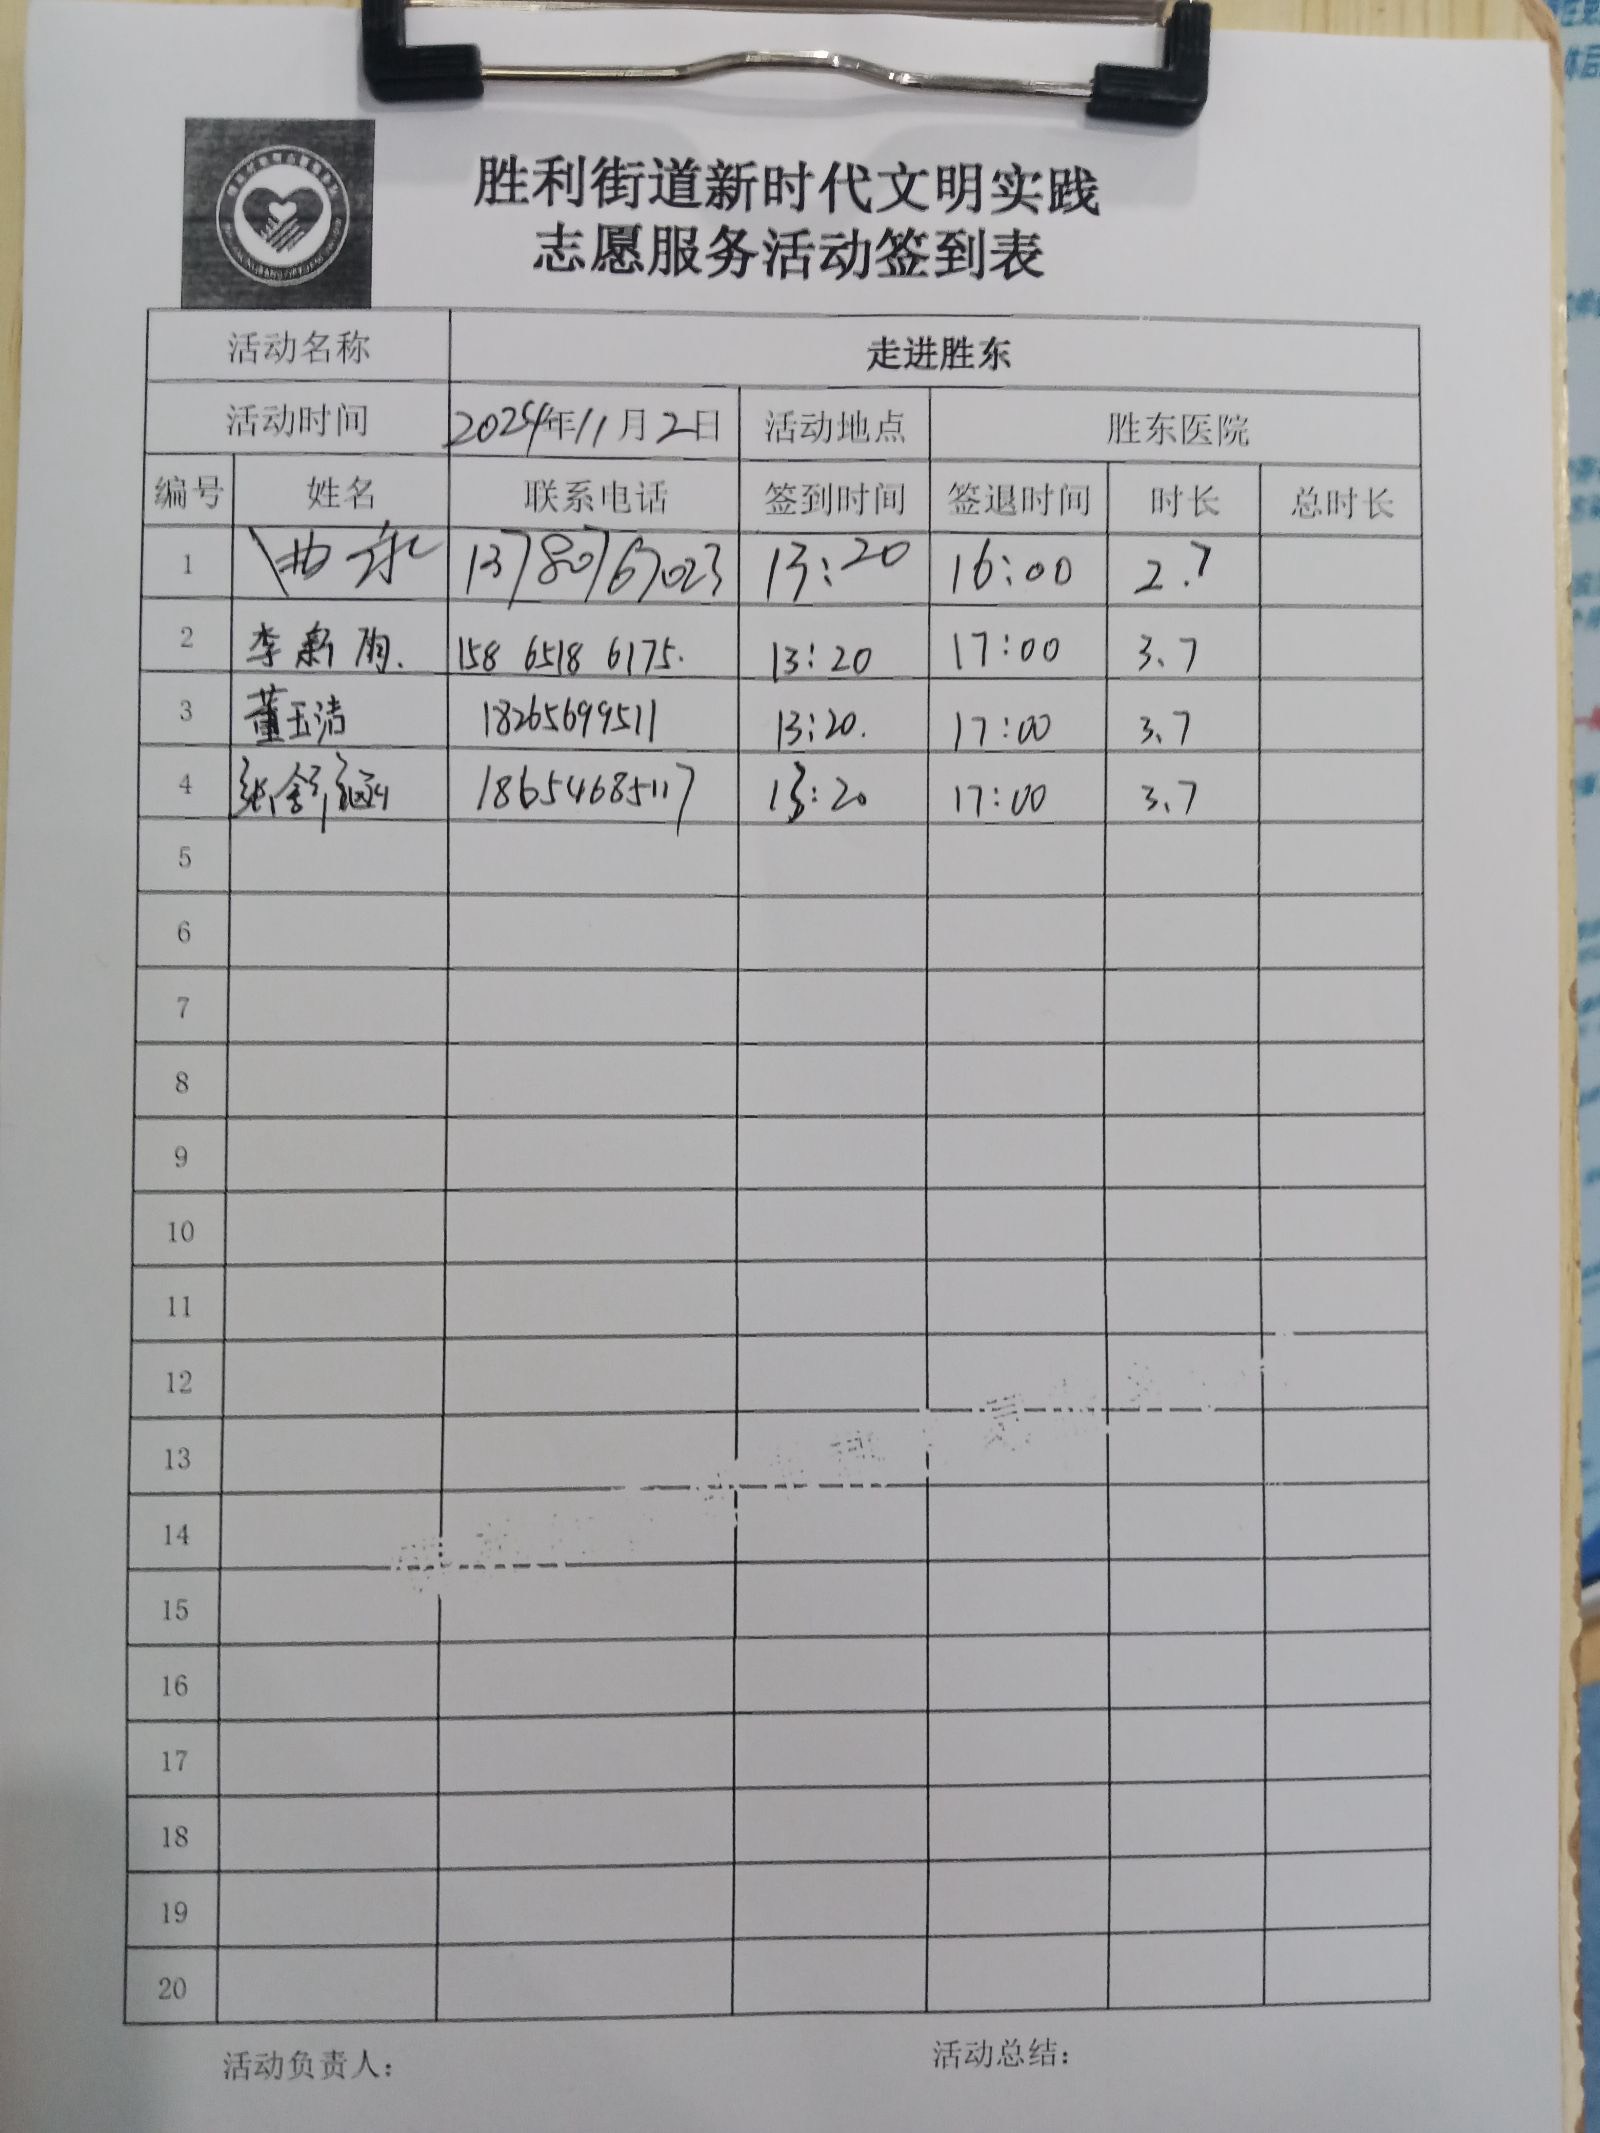 胜利街道新时代文明实践
志愿服务活动签到表
活动名称 走进胜东
活动时间 2024年11月2日 活动地点 胜东医院
编号 姓名 联系电话 签到时间 签退时间 时长 总时长
1 13780767023 13:20 16:00 2.7
2 李新雨. 158 6518 6175. 13:20 17:00 3、7
3 董玉洁 18265699511 13:20. 17:00 3、7
4 张舒涵 18654685117 13:20 17:00 3、7
5
6
7
8
9
10
11
12
13
14
15
16
17
18
19
20
活动负责人： 活动总结：